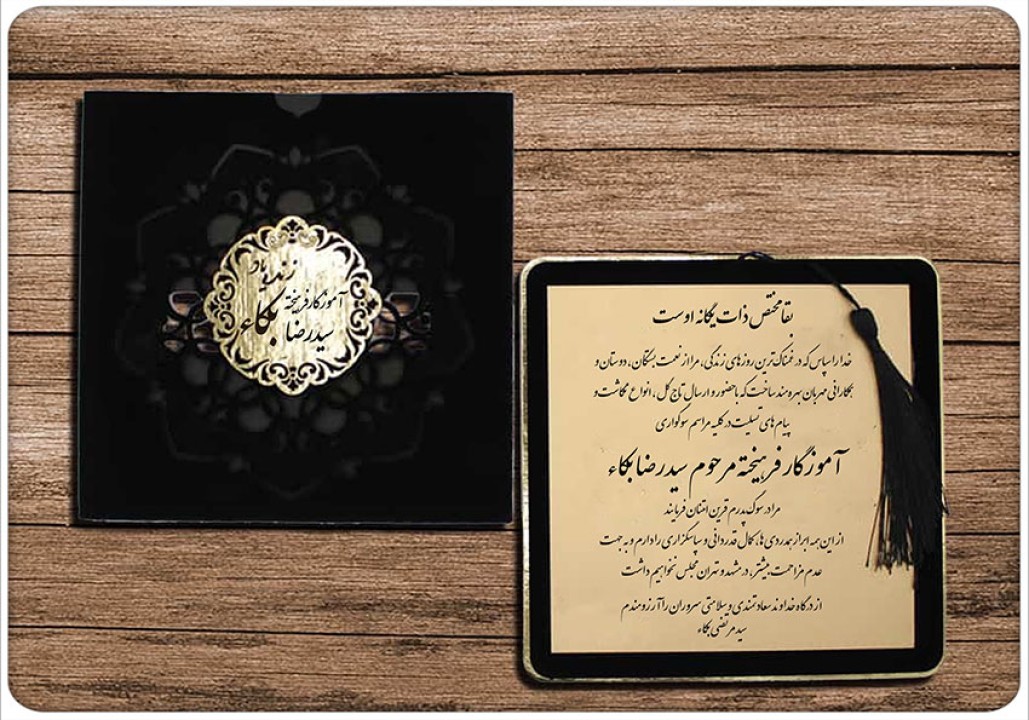 زنده یاد
آموزگار فرهیخته
سیدرضا بکاء
بقا مختص ذات یگانه اوست
خدا را سپاس که در غمناک‌ترین روزهای زندگی، مرا از نعمت بستگان، دوستان و
همکارانی مهربان بهره‌مند ساخت که با حضور و ارسال تاج گل، انواع نگاشت و
پیام های تسلیت در کلیه مراسم سوگواری
آموزگار فرهیخته مرحوم سیدرضا بکاء
مرا در سوگ پدرم قرین امتنان فرمایند
از این همه ابراز همدردی ها، کمال قدردانی و سپاسگزاری را دارم و به جهت
عدم مزاحمت بیشتر، در مشهد و تهران مجلس نخواهیم داشت
از درگاه خداوند سعادتمندی و سلامتی سروران را آرزومندم
سید مرتضی بکاء